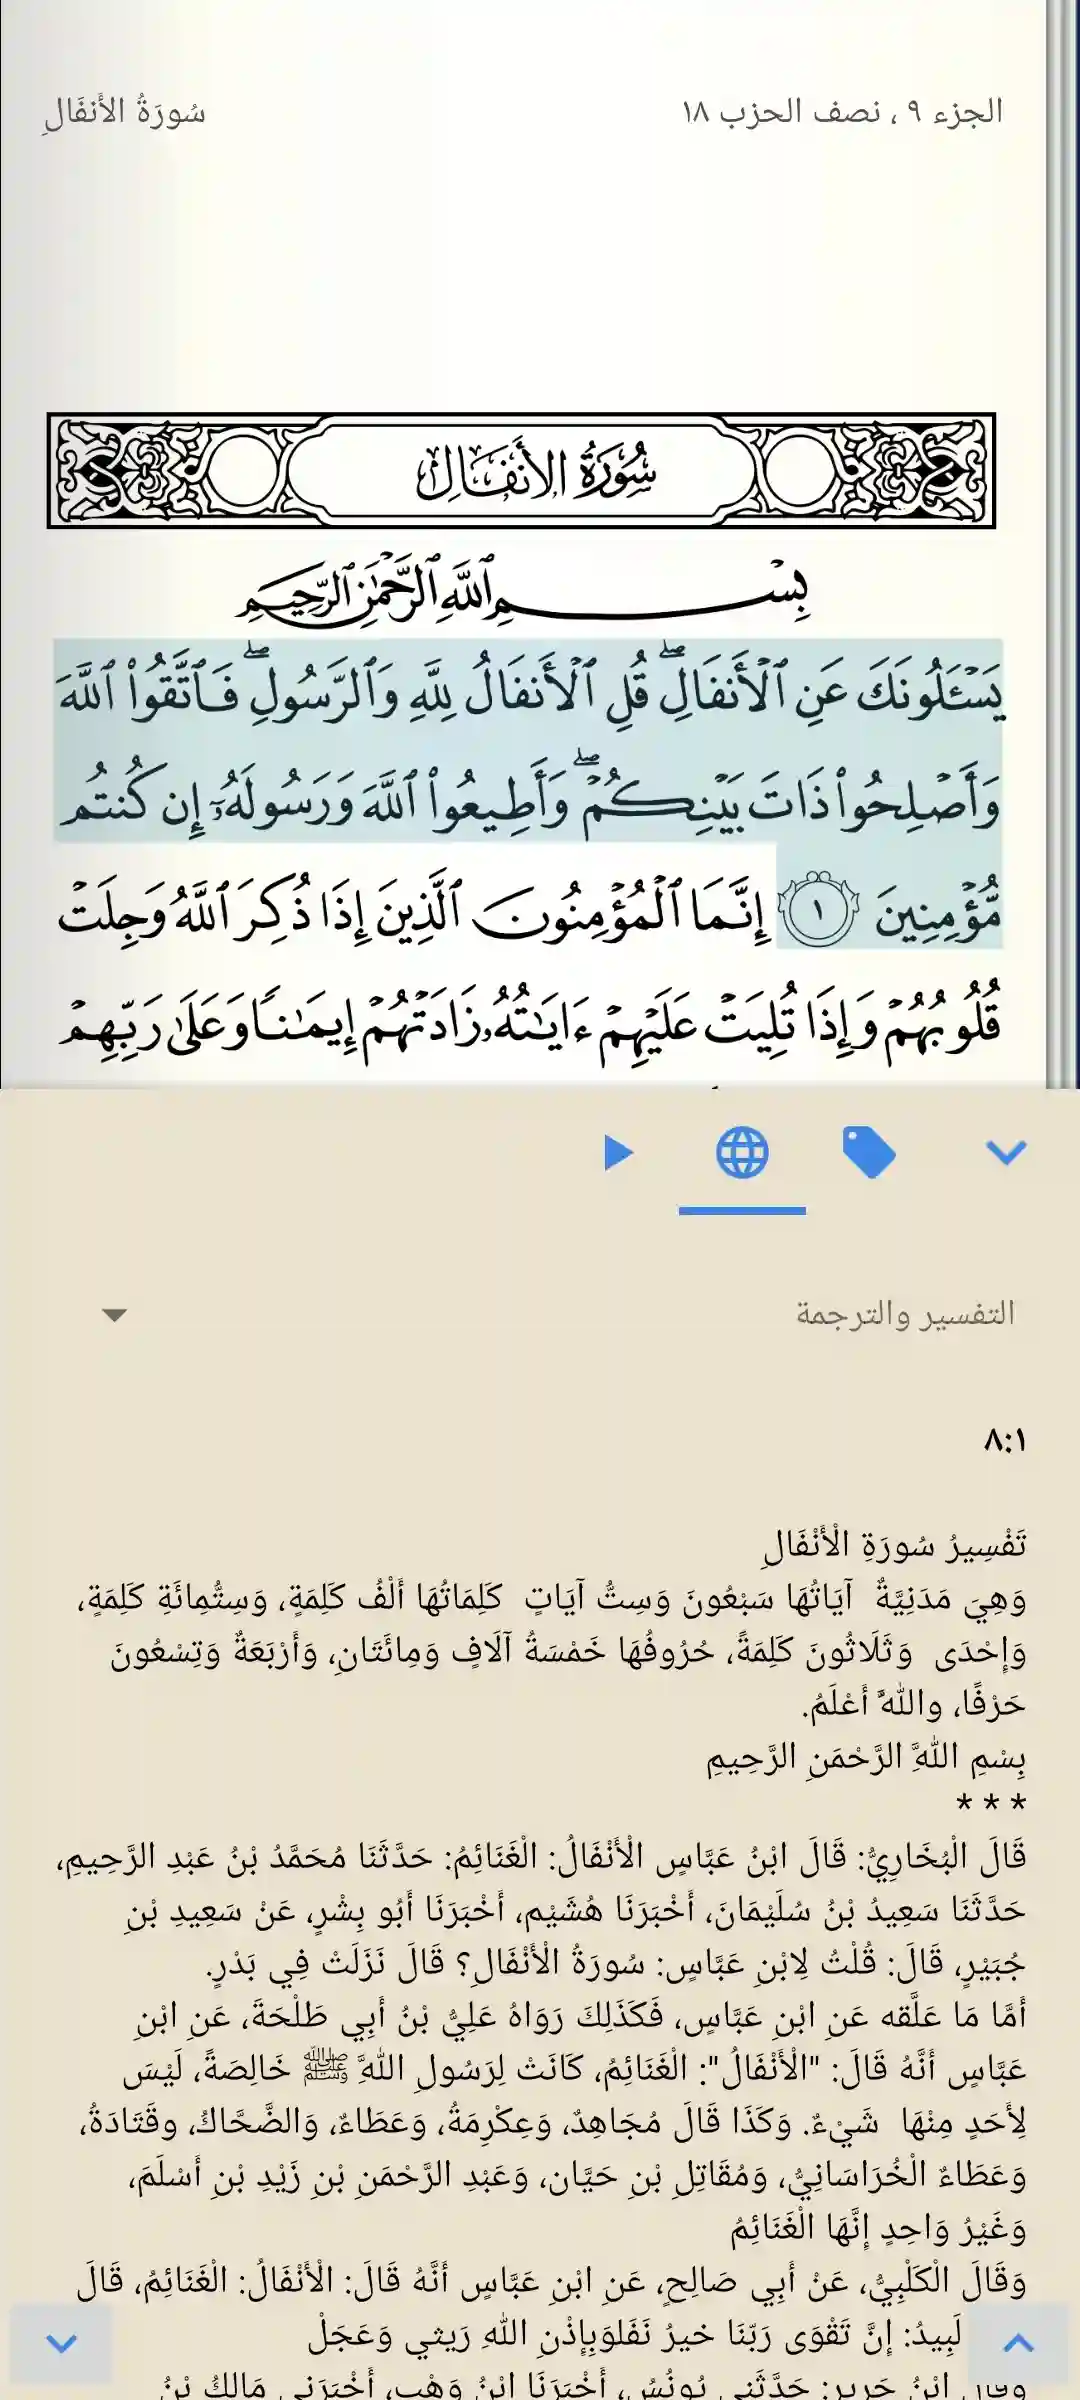 الجزء ٩ ، نصف الحزب ١٨
سُورَةُ الأَنفَالِ
سُورَةُ الأَنفَالِ
بِسْمِ ٱللَّهِ ٱلرَّحْمَٰنِ ٱلرَّحِيمِ
يَسْـَٔلُونَكَ عَنِ ٱلْأَنفَالِ ۖ قُلِ ٱلْأَنفَالُ لِلَّهِ وَٱلرَّسُولِ ۖ فَٱتَّقُوا۟ ٱللَّهَ
وَأَصْلِحُوا۟ ذَاتَ بَيْنِكُمْ ۖ وَأَطِيعُوا۟ ٱللَّهَ وَرَسُولَهُۥٓ إِن كُنتُم
مُّؤْمِنِينَ ١ إِنَّمَا ٱلْمُؤْمِنُونَ ٱلَّذِينَ إِذَا ذُكِرَ ٱللَّهُ وَجِلَتْ
قُلُوبُهُمْ وَإِذَا تُلِيَتْ عَلَيْهِمْ ءَايَٰتُهُۥ زَادَتْهُمْ إِيمَٰنًا وَعَلَىٰ رَبِّهِمْ
التفسير والترجمة
٨:١
تَفْسِيرُ سُورَةِ الْأَنْفَالِ
وَهِيَ مَدَنِيَّةٌ آيَاتُهَا سَبْعُونَ وَسِتُّ آيَاتٍ كَلِمَاتُهَا أَلْفُ كَلِمَةٍ، وَسِتُّمِائَةِ كَلِمَةٍ،
وَإِحْدَى وَثَلَاثُونَ كَلِمَةً، حُرُوفُهَا خَمْسَةُ آلَافٍ وَمِائَتَانِ، وَأَرْبَعَةٌ وَتِسْعُونَ
حَرْفًا، واللهُ أَعْلَمُ.
بِسْمِ اللَّهِ الرَّحْمَنِ الرَّحِيمِ
* * *
قَالَ الْبُخَارِيُّ: قَالَ ابْنُ عَبَّاسٍ الْأَنْفَالُ: الْغَنَائِمُ: حَدَّثَنَا مُحَمَّدُ بْنُ عَبْدِ الرَّحِيمِ،
حَدَّثَنَا سَعِيدُ بْنُ سُلَيْمَانَ، أَخْبَرَنَا هُشَيْم، أَخْبَرَنَا أَبُو بِشْرٍ، عَنْ سَعِيدِ بْنِ
جُبَيْرٍ، قَالَ: قُلْتُ لِابْنِ عَبَّاسٍ: سُورَةُ الْأَنْفَالِ؟ قَالَ نَزَلَتْ فِي بَدْرٍ.
أَمَّا مَا عَلَّقه عَنِ ابْنِ عَبَّاسٍ، فَكَذَلِكَ رَوَاهُ عَلِيُّ بْنُ أَبِي طَلْحَةَ، عَنِ ابْنِ
عَبَّاسٍ أَنَّهُ قَالَ: "الْأَنْفَالُ": الْغَنَائِمُ، كَانَتْ لِرَسُولِ اللَّهِ ﷺ خَالِصَةً، لَيْسَ
لِأَحَدٍ مِنْهَا شَيْءٌ. وَكَذَا قَالَ مُجَاهِدٌ، وَعِكْرِمَةُ، وَعَطَاءٌ، وَالضَّحَّاكُ، وقَتَادَةُ،
وَعَطَاءٌ الْخُرَاسَانِيُّ، وَمُقَاتِلِ بْنِ حَيَّان، وَعَبْدِ الرَّحْمَنِ بْنِ زَيْدِ بْنِ أَسْلَمَ،
وَغَيْرُ وَاحِدٍ إِنَّهَا الْغَنَائِمُ
وَقَالَ الْكَلْبِيُّ، عَنْ أَبِي صَالِحٍ، عَنِ ابْنِ عَبَّاسٍ أَنَّهُ قَالَ: الْأَنْفَالُ: الْغَنَائِمُ، قَالَ
لَبِيدُ: إِنَّ تَقْوَى رَبِّنَا خيرُ نَفَلوَبِإذْنِ اللهِ رَيثي وَعَجَلْ
وقال ابْنُ جَرِيرٍ: حَدَّثَنِي يُونُسُ، أَخْبَرَنَا ابْنُ وَهْبٍ، أَخْبَرَنِي مَالِكُ بْنُ